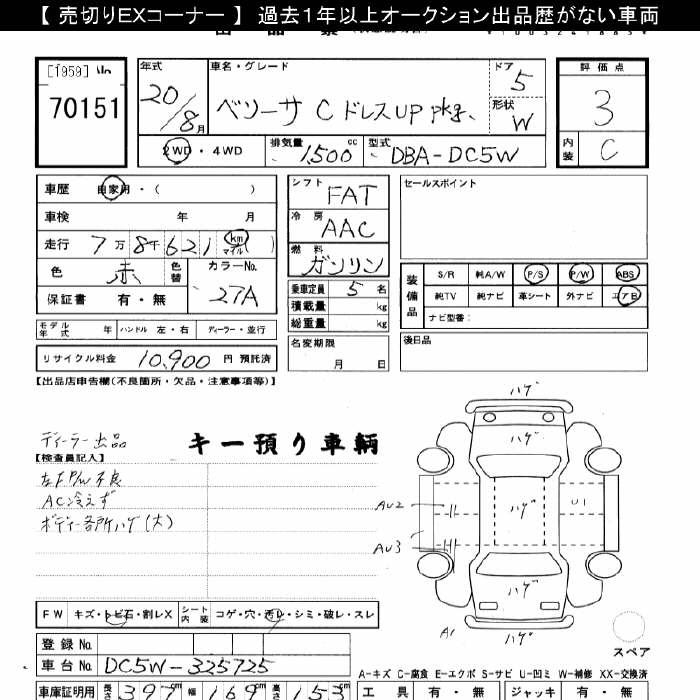 【 売切りEXコーナー 】 過去1年以上オークション出品歴がない車両
[1959] No
70151
年式
20/8月
車名・グレード
ベリーサ C ドレスUP pkg、
ドア
5
形状
W
評価点
3
内装
C
2WD・4WD
排気量
1,500cc
型式
DBA-DC5W
車歴 自家用・( )
車検 年 月
走行 7万8千621 km マイル ( )
色 赤 色替
カラーNo.
27A
保証書 有・無
シフト
FAT
冷房
AAC
燃料
ガソリン
乗車定員 5名
積載量 kg
総重量 kg
セールスポイント
装備品
S/R 純A/W P/S P/W ABS
純TV 純ナビ 革シート 外ナビ エアB
ナビ型番:
モデル年式 年 ハンドル 左・右 ディーラー・並行
名変期限
月 日
後日品
リサイクル料金 10,900 円 預託済
【出品店申告欄(不良箇所・欠品・注意事項等)】
ディーラー出品
キー預り車輌
【検査員記入】
左F P/W 不良
AC冷えず
ボディー各所ハゲ(大)
ハゲ
ハゲ
ハゲ
ハゲ
ハゲ
AU2
AU3
U1
A1
スペア
FW キズ・トビ石・割レX
シート内装 コゲ・穴・汚レ・シミ・破レ・スレ
登録 No.
車台 No. DC5W-325725
A-キズ C-腐食 E-エクボ S-サビ U-凹ミ W-補修 XX-交換済
車庫証明用 長さ 397cm 幅 169cm 高さ 153cm
工具 有・無 ジャッキ 有・無